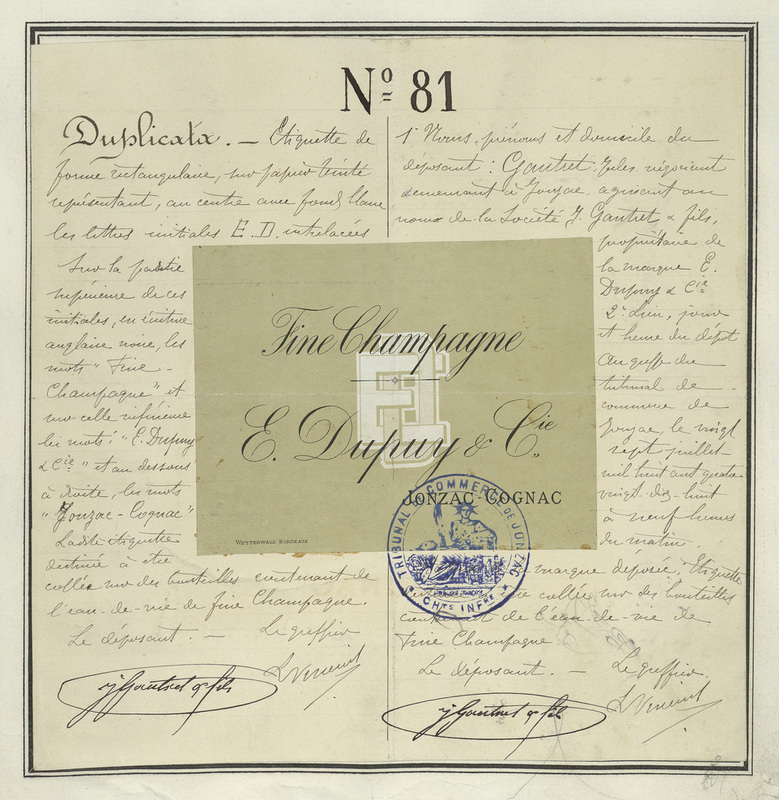 Nº 81
Duplicata. — Etiquette de
forme rectangulaire, sur papier teinté
représentant, au centre avec fond blanc
les lettres initiales E. D. entrelacées
Sur la partie
supérieure de ces
initiales, en écriture
anglaise noire, les
mots "Fine
Champagne" et
sur celle inférieure
les mots: "E. Dupuy
& Cie" et au dessous
à droite, les mots
"Jonzac-Cognac"
Ladite étiquette
destinée à être
collée sur des bouteilles contenant de
l'eau-de-vie de fine Champagne.
Le déposant. — Le greffier
J Gautret & fils
Fine Champagne
E. Dupuy & Cie
JONZAC COGNAC
WETTERWALD BORDEAUX
TRIBUNAL DE COMMERCE DE JONZAC
CHTE INFRE
1º Noms, prénoms et domicile du
déposant: Gautret Jules négociant
demeurant à Jonzac, agissant au
nom de la Société J. Gautret & fils,
propriétaire de
la marque E.
Dupuy & Cie
2º Lieu, jour
et heure du dépôt
Au greffe du
tribunal de
commerce de
Jonzac, le vingt
sept juillet
mil huit cent quatre
vingt-dix-huit
à neuf heures
du matin
marque déposée: Etiquette
collée sur des bouteilles
de l'eau-de-vie de
fine Champagne
Le déposant. — Le greffier.
J Gautret & fils